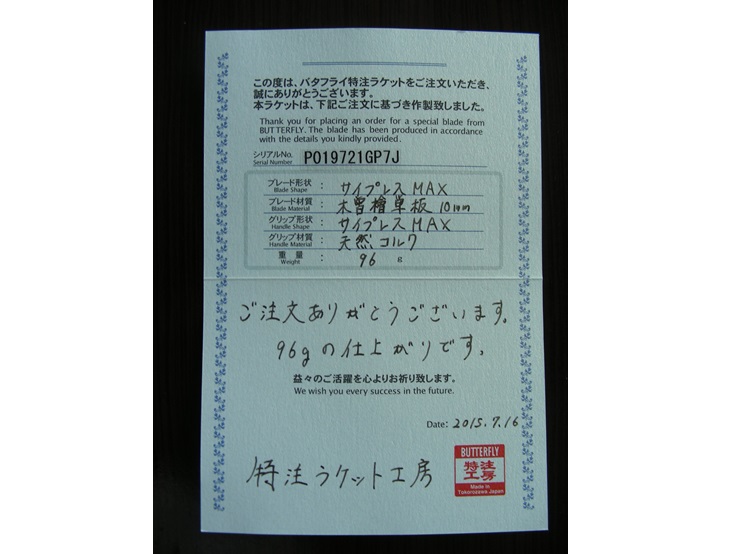 この度は、バタフライ特注ラケットをご注文いただき、
誠にありがとうございます。
本ラケットは、下記ご注文に基づき作製致しました。
Thank you for placing an order for a special blade from
BUTTERFLY. The blade has been produced in accordance
with the details you kindly provided.
シリアルNo. P019721GP7J
Serial Number
ブレード形状 : サイプレスMAX
Blade Shape
ブレード材質 : 木曽檜単板 10mm
Blade Material
グリップ形状 : サイプレスMAX
Handle Shape
グリップ材質 : 天然コルク
Handle Material
重量 : 96 g
Weight
ご注文ありがとうございます。
96gの仕上がりです。
益々のご活躍を心よりお祈り致します。
We wish you every success in the future.
Date: 2015.7.16
特注ラケット工房
BUTTERFLY
特注
工房
Made in
Tokorozawa Japan